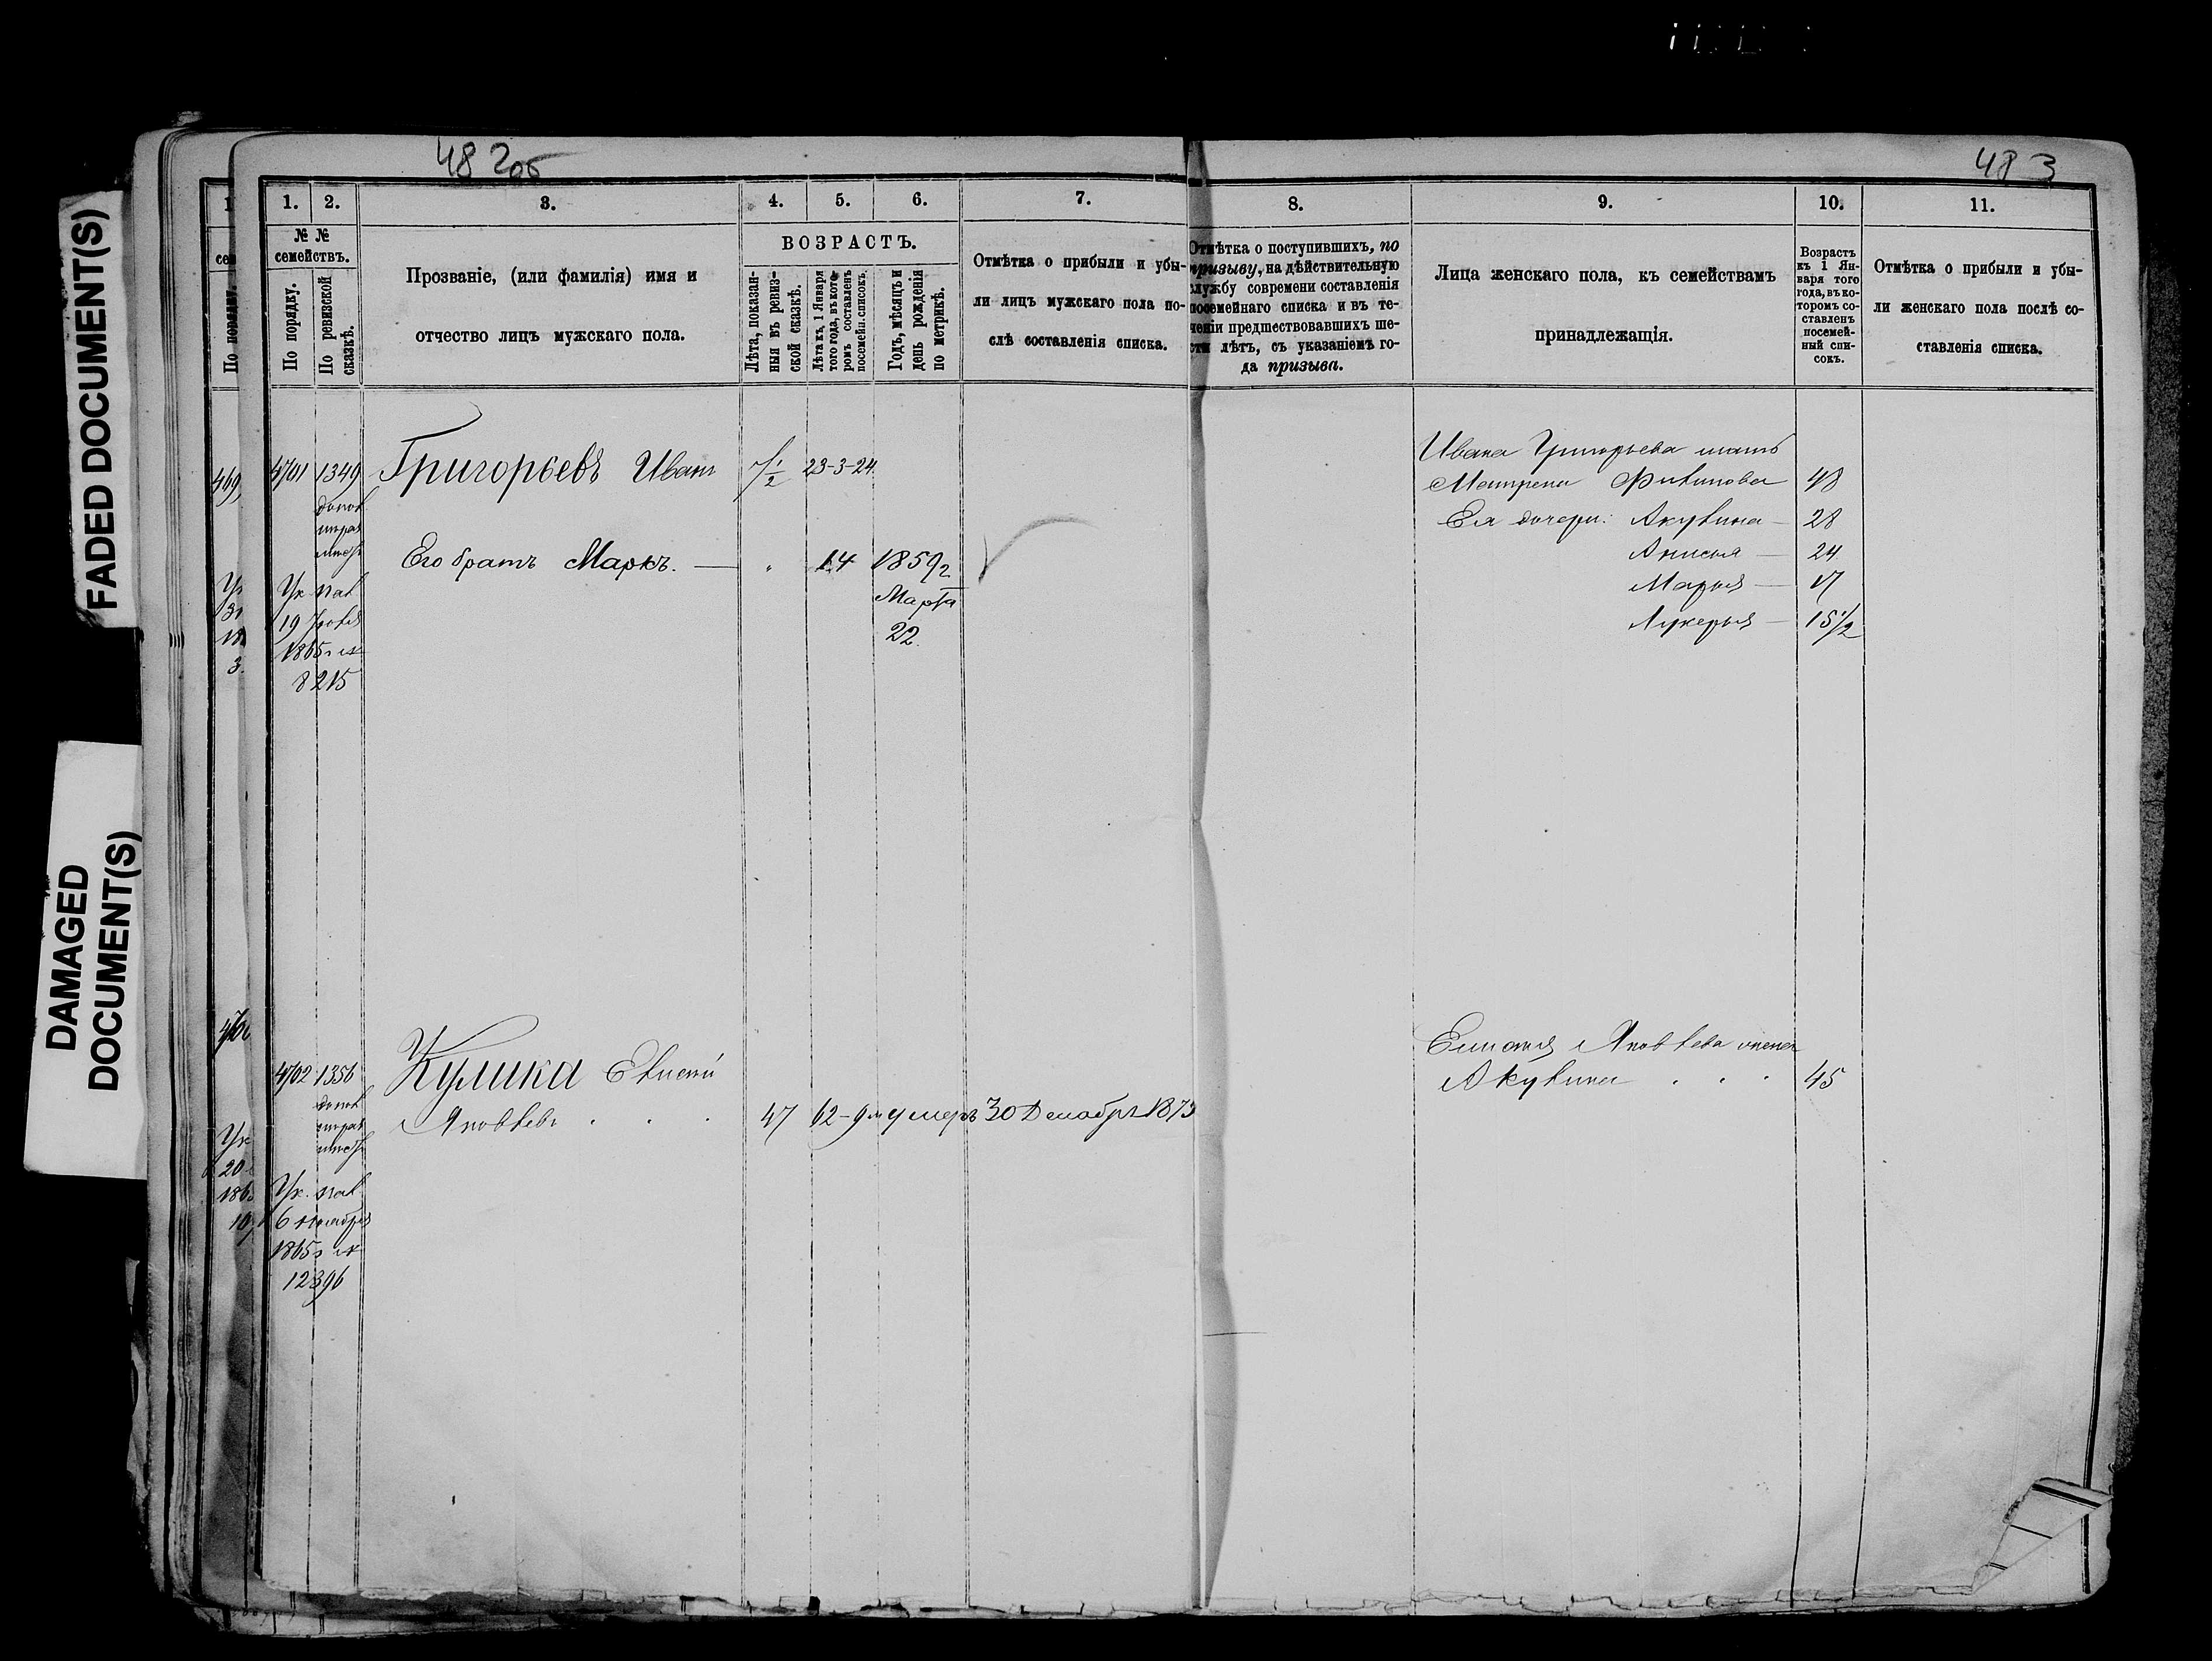 FADED DOCUMENT(S)
DAMAGED
DOCUMENT(S)
48 2об
48 3
1. 2. 3. 4. 5. 6. 7. 8. 9. 10. 11.
№ №
семействъ.
По порядку.
По ревизской
сказкѣ.
Прозваніе, (или фамилія) имя и
отчество лицъ мужскаго пола.
ВОЗРАСТЪ.
Лѣта, показан-
ныя въ ревиз-
ской сказкѣ.
Лѣта къ 1 Января
того года, въ кото-
ромъ составленъ
посемейн. списокъ.
Годъ, мѣсяцъ и
день рожденія
по метрикѣ.
Отмѣтка о прибыли и убы-
ли лицъ мужскаго пола по-
слѣ составленія списка.
Отмѣтка о поступившихъ, по
призыву, на дѣйствительную
службу современи составленія
посемейнаго списка и въ те-
ченіи предшествовавшихъ ше-
сти лѣтъ, съ указаніемъ го-
да призыва.
Лица женскаго пола, къ семействамъ
принадлежащія.
Возрастъ
къ 1 Ян-
варя того
года, въ ко-
торомъ со-
ставленъ
посемей-
ный спи-
сокъ.
Отмѣтка о прибыли и убы-
ли женскаго пола послѣ со-
ставленія списка.
4701 1349 Григорьевъ Иванъ 7 1/2 23-3-24.
Его братъ Маркъ. — " 14 1859г
Марта
22.
Ук. пал
19 Іюля
1865 г №
8215
Ивана Григорьева мать
Матрена Филипова 48
Ея дочери: Акулина — 28
Анисья — 24
Марья — 17
Лукерья — 15 1/2
4702 1356 Кулика Елисей
Яковлевъ . . . 47 62-9 м умеръ 30 Декабря 1873
Ук. пал
6 Ноября
1865 г №
12396
Елисея Яковлева жена
Акулина . . . 45